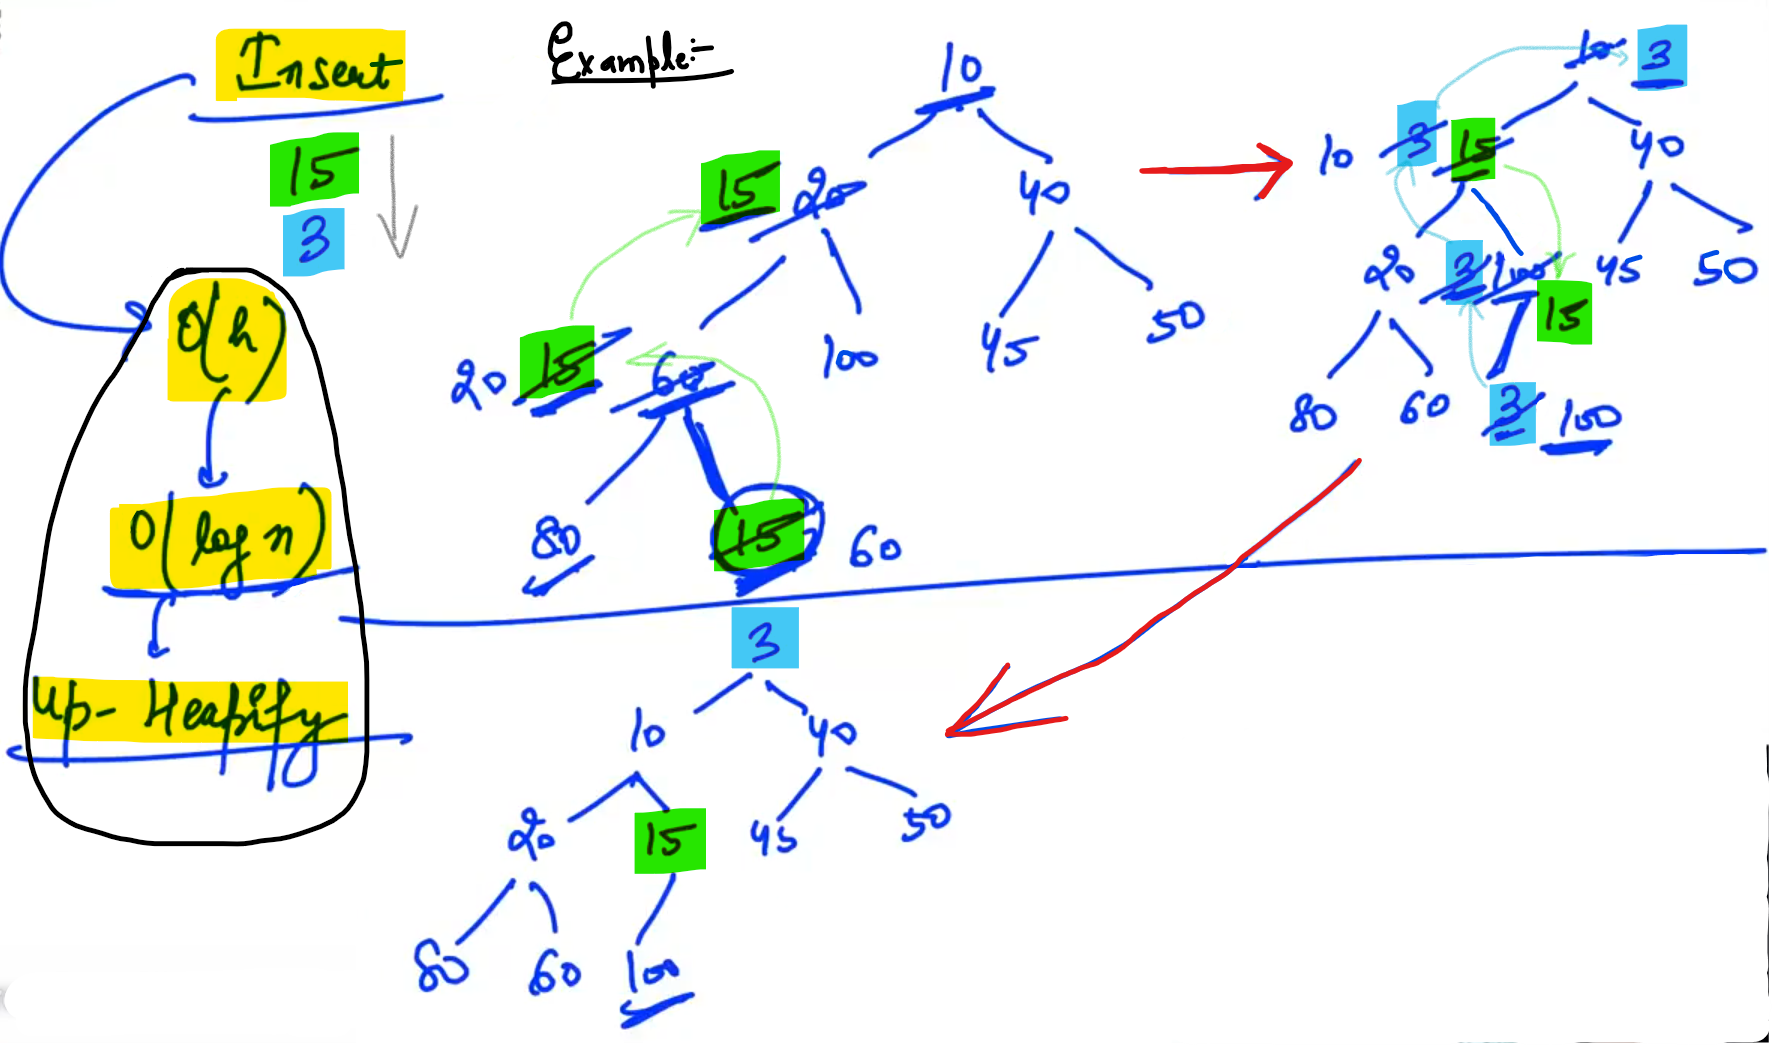 Insert
15
3
O(h)
O(log n)
Up- Heapify
Example:-
10
15 20 40
20 15 60 100 45 50
80 15 60
10 3
10 3 15 40
20 3 100 15 45 50
80 60 3 100
3
10 40
20 15 45 50
80 60 100